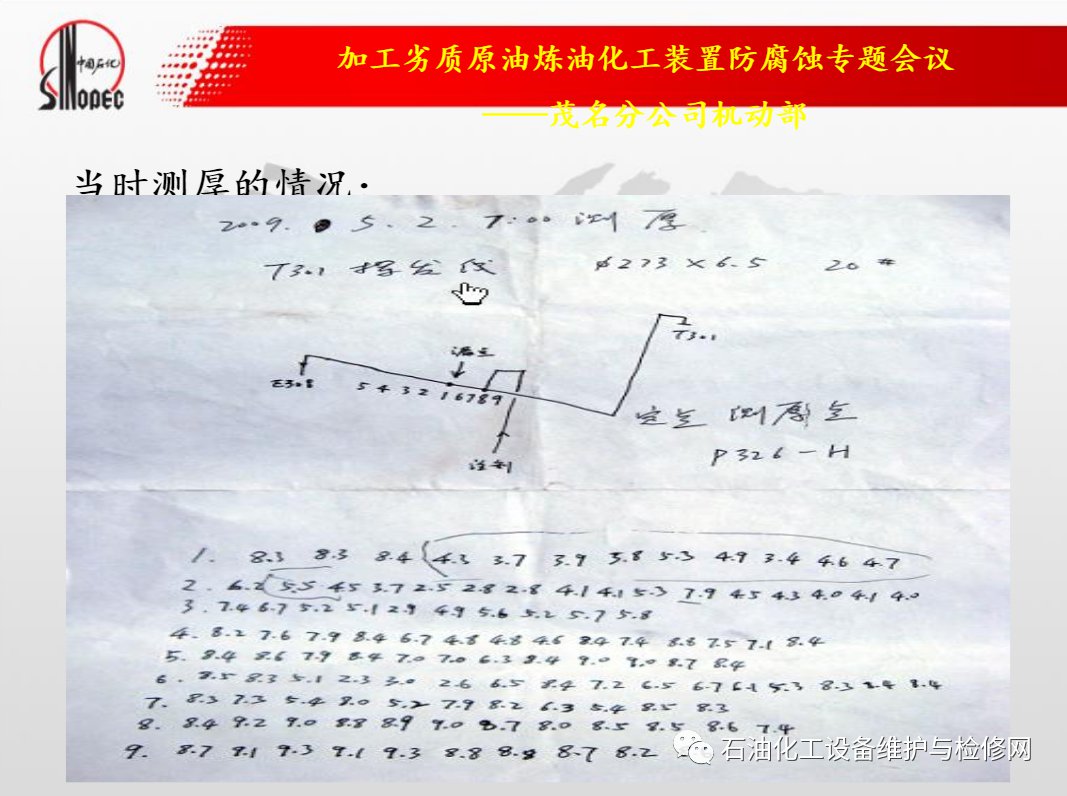 中国石化
SINOPEC
加工劣质原油炼油化工装置防腐蚀专题会议
——茂名分公司机动部
当时测厚的情况:
2009. 5.2. 7:00 测厚
T301 挥发线 φ273×6.5 20#
漏点
T301
E308 5 4 3 2 1 6 7 8 9
定点测厚点
P326-H
注剂
1. 8.3 8.3 8.4 4.3 3.7 3.9 3.8 5.3 4.9 3.4 4.6 4.7
2. 6.2 5.5 4.5 3.7 2.5 2.8 2.8 4.1 4.1 5.3 7.9 4.5 4.3 4.0 4.1 4.0
3. 7.4 6.7 5.2 5.1 2.9 4.9 5.6 5.2 5.7 5.8
4. 8.2 7.6 7.9 8.4 6.7 4.8 4.8 4.6 8.4 7.4 8.8 7.5 7.1 8.4
5. 8.4 8.6 7.9 8.4 7.0 7.0 6.3 8.4 9.0 9.0 8.7 8.4
6. 8.5 8.3 5.1 2.3 3.0 2.6 6.5 8.4 7.2 6.5 6.7 6.1 5.3 8.3 8.4 8.4
7. 8.3 7.3 5.4 8.0 5.2 7.9 8.2 6.3 5.4 8.5 8.3
8. 8.4 9.2 9.0 8.8 8.9 9.0 8.7 8.0 8.5 8.5 8.6 7.4
9. 8.7 9.1 9.3 9.1 9.3 8.8 8.7 8.2
石油化工设备维护与检修网